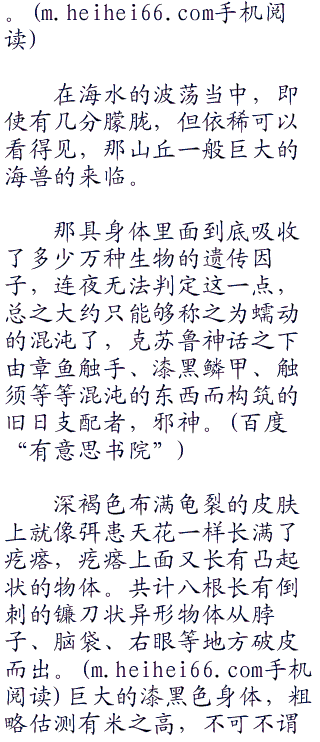 。(m.heihei66.com手机阅
读)
在海水的波荡当中，即
使有几分朦胧，但依稀可以
看得见，那山丘一般巨大的
海兽的来临。
那具身体里面到底吸收
了多少万种生物的遗传因
子，连夜无法判定这一点，
总之大约只能够称之为蠕动
的混沌了，克苏鲁神话之下
由章鱼触手、漆黑鳞甲、触
须等等混沌的东西而构筑的
旧日支配者，邪神。(百度
“有意思书院”)
深褐色布满龟裂的皮肤
上就像弭患天花一样长满了
疙瘩，疙瘩上面又长有凸起
状的物体。共计八根长有倒
刺的镰刀状异形物体从脖
子、脑袋、右眼等地方破皮
而出。(m.heihei66.com手机
阅读)巨大的漆黑色身体，粗
略估测有米之高，不可不谓